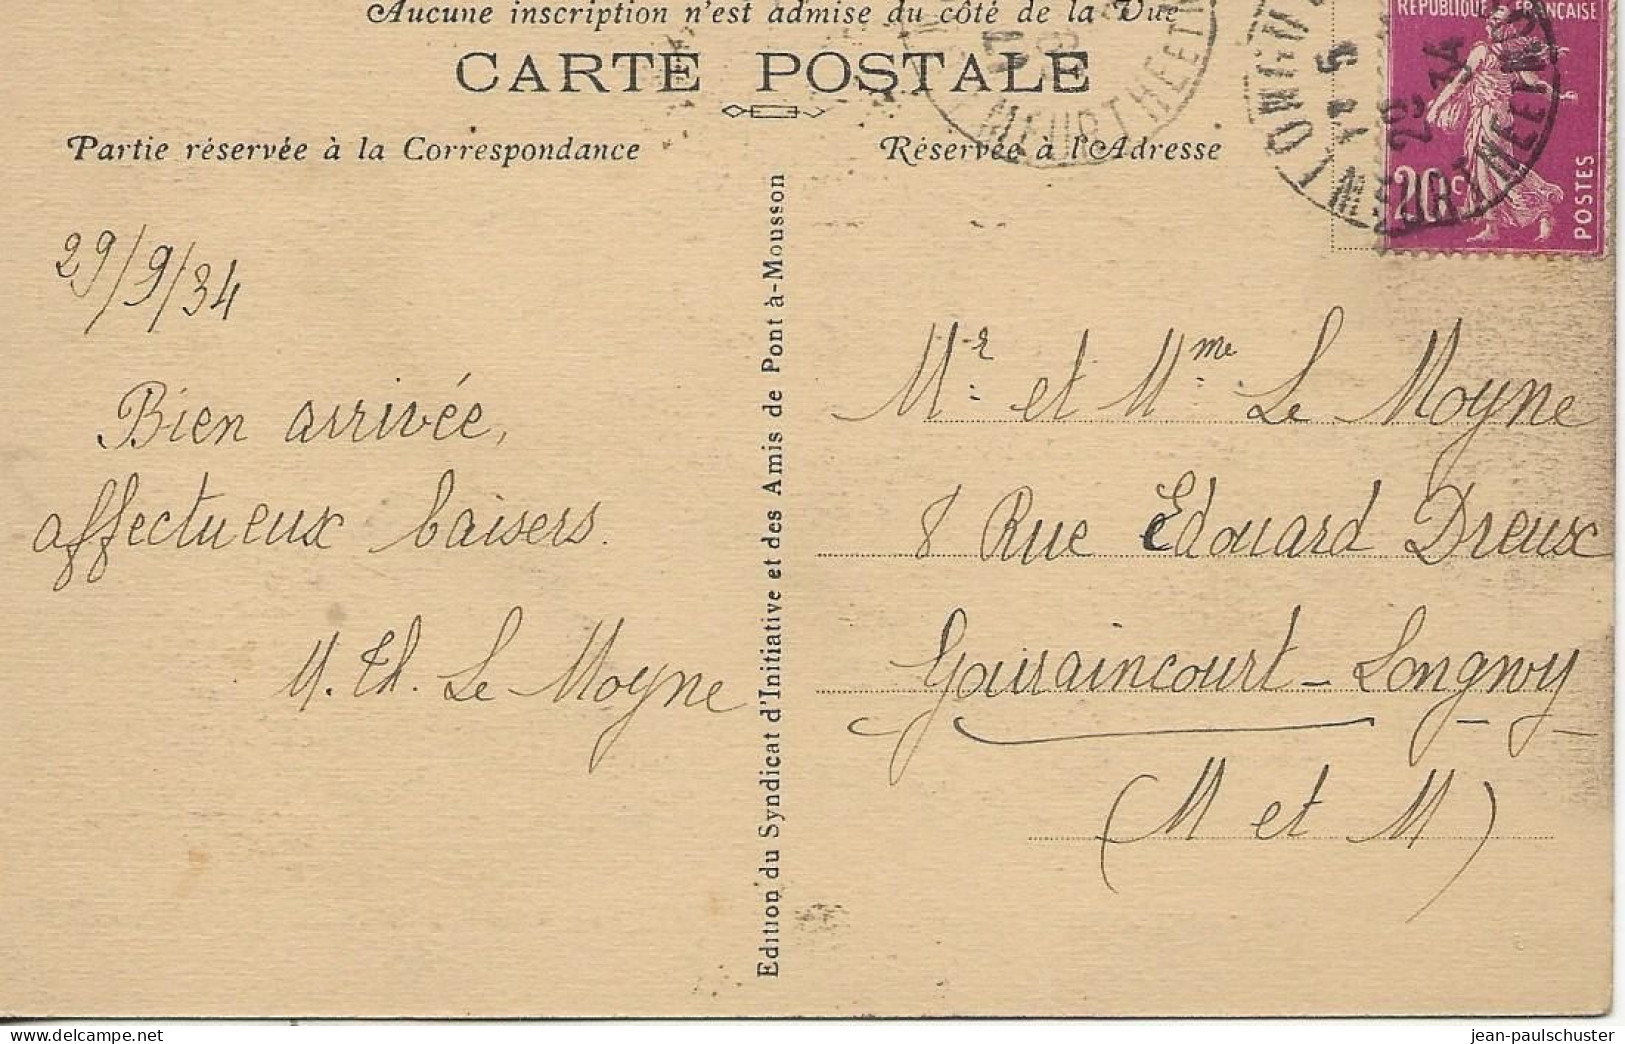 Aucune inscription n'est admise du côté de la Vue
CARTE POSTALE
Partie réservée à la Correspondance
Réservée à l'Adresse
RÉPUBLIQUE FRANÇAISE
20c
POSTES
MEURTHE ET M
LONGWY
MEURTHE ET M
29/9/34
Bien arrivée,
affectueux baisers.
M. Th. Le Moyne
Edition du Syndicat d'Initiative et des Amis de Pont à-Mousson
Mr et Mme Le Moyne
8 Rue Edouard Dreux
Gouraincourt - Longwy
(M et M)
delcampe.net
jean-paulschuster